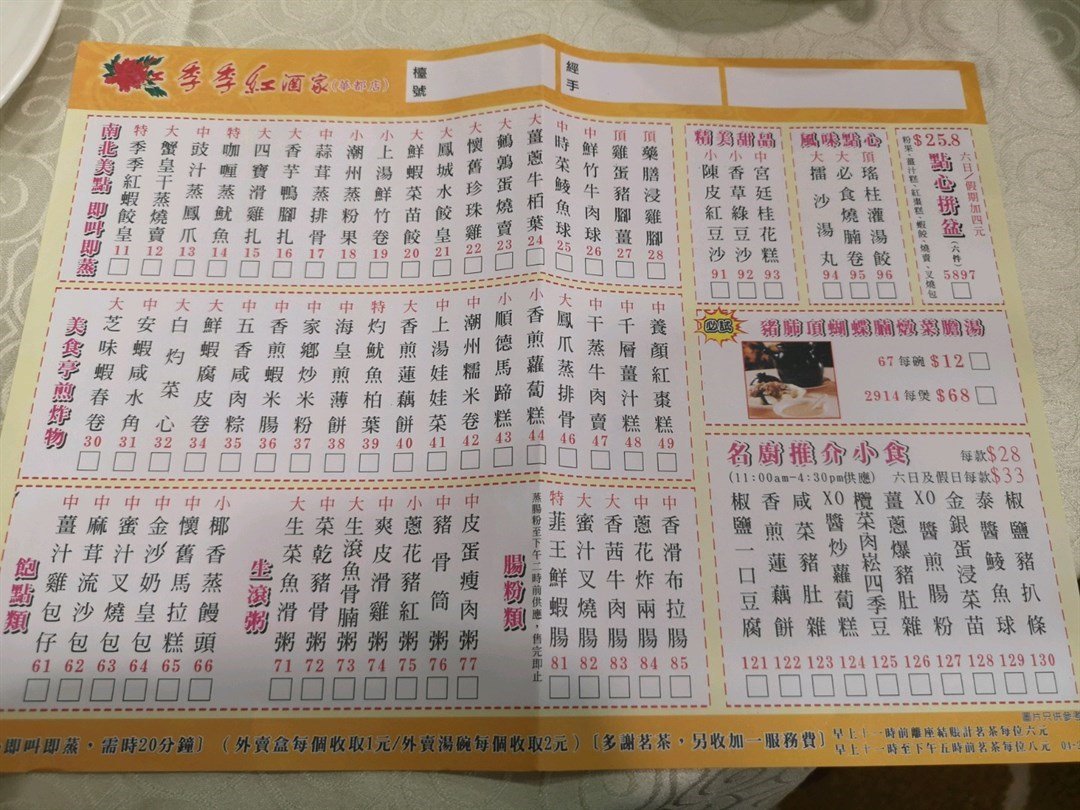 季季紅酒家(華都店)
檯號
經手
南北美點 即叫即蒸
特 季季紅蝦餃皇 11
大 蟹皇干蒸燒賣 12
中 豉汁蒸鳳爪 13
特 咖喱蒸魷魚 14
大 四寶滑雞扎 15
大 香芋鴨腳扎 16
中 蒜茸蒸排骨 17
小 潮州蒸粉果 18
上 上湯鮮竹卷 19
大 鮮蝦菜苗餃 20
大 鳳城水餃皇 21
大 懷舊珍珠雞 22
大 鵪鶉蛋燒賣 23
大 薑蔥牛柏葉 24
中 時菜鯪魚球 25
中 鮮竹牛肉球 26
頂 雞蛋豬腳薑 27
頂 藥膳浸雞腳 28
美食亭煎炸物
大 芝味蝦春卷 30
中 安蝦咸水角 31
大 白灼菜心 32
大 鮮蝦腐皮卷 34
中 五香咸肉粽 35
中 香煎蝦米腸 36
中 家鄉炒米粉 37
中 海皇煎薄餅 38
特 灼魷魚柏葉 39
大 香煎蓮藕餅 40
中 上湯娃娃菜 41
中 潮州糯米卷 42
小 順德馬蹄糕 43
小 香煎蘿蔔糕 44
大 鳳爪蒸排骨 46
中 干蒸牛肉賣 47
中 千層薑汁糕 48
中 養顏紅棗糕 49
飽點類
中 薑汁雞包仔 61
中 麻茸流沙包 62
中 蜜汁叉燒包 63
中 金沙奶皇包 64
中 懷舊馬拉糕 65
小 椰香蒸饅頭 66
生滾粥
大 生菜魚滑粥 71
中 菜乾豬骨粥 72
大 生滾魚骨腩粥 73
中 爽皮滑雞粥 74
小 蔥花豬紅粥 75
中 豬骨筒粥 76
中 皮蛋瘦肉粥 77
腸粉類
蒸腸粉至下午二時前供應，售完即止
特 韮王鮮蝦腸 81
大 蜜汁叉燒腸 82
大 香茜牛肉腸 83
中 蔥花炸兩腸 84
中 香滑布拉腸 85
精美甜品
小 陳皮紅豆沙 91
小 香草綠豆沙 92
中 宮廷桂花糕 93
風味點心
大 擂沙湯丸 94
大 必食燒腩卷 95
頂 瑤柱灌湯餃 96
$25.8
點心拼盆(六件)
六日/假期加四元
粉果、薑汁糕、紅棗糕、蝦餃、燒賣、叉燒包
5897
必試
豬肺頂蝴蝶腩燉菜膽湯
67 每碗 $12
2914 每煲 $68
名廚推介小食 每款$28
(11:00am-4:30pm供應) 六日及假日每款$33
椒鹽一口豆腐 121
香煎蓮藕餅 122
咸菜豬肚雜 123
XO醬炒蘿蔔糕 124
欖菜肉崧四季豆 125
薑蔥爆豬肚雜 126
XO醬煎腸粉 127
金銀蛋浸菜苗 128
泰醬鯪魚球 129
椒鹽豬扒條 130
圖片只供參考
即叫即蒸，需時20分鐘〕 (外賣盒每個收取1元/外賣湯碗每個收取2元) 〔多謝茗茶，另收加一服務費〕
早上十一時前離座結賬計茗茶每位六元
早上十一時至下午五時前茗茶每位八元